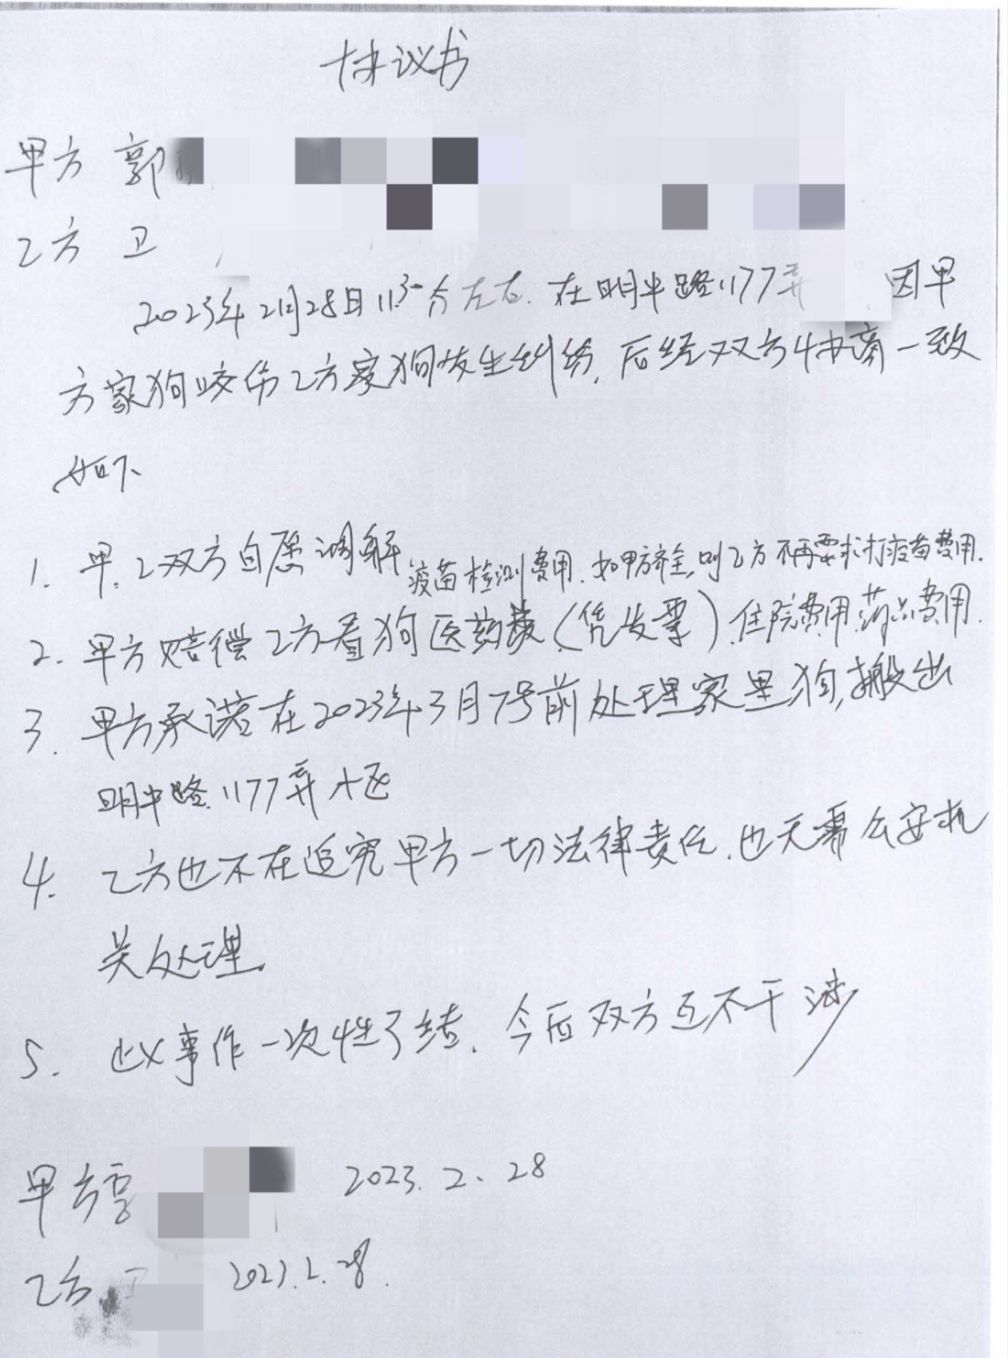 协议书
甲方 郭
乙方 卫
2023年2月28日11:30分左右.在明中路1177弄 因甲
方家狗咬伤乙方家狗发生纠纷,后经双方协商一致
如下
1. 甲.乙双方自愿调解
疫苗检测费用.如甲方齐全,则乙方不再要求打疫苗费用.
2. 甲方赔偿乙方看狗医药费(凭发票).住院费用.药品费用.
3. 甲方承诺在2023年3月7号前处理家里狗,搬出
明中路1177弄小区
4. 乙方也不在追究甲方一切法律责任.也无需公安机
关处理.
5. 此事作一次性了结.今后双方互不干涉
甲方 2023.2.28
乙方 2023.2.28.